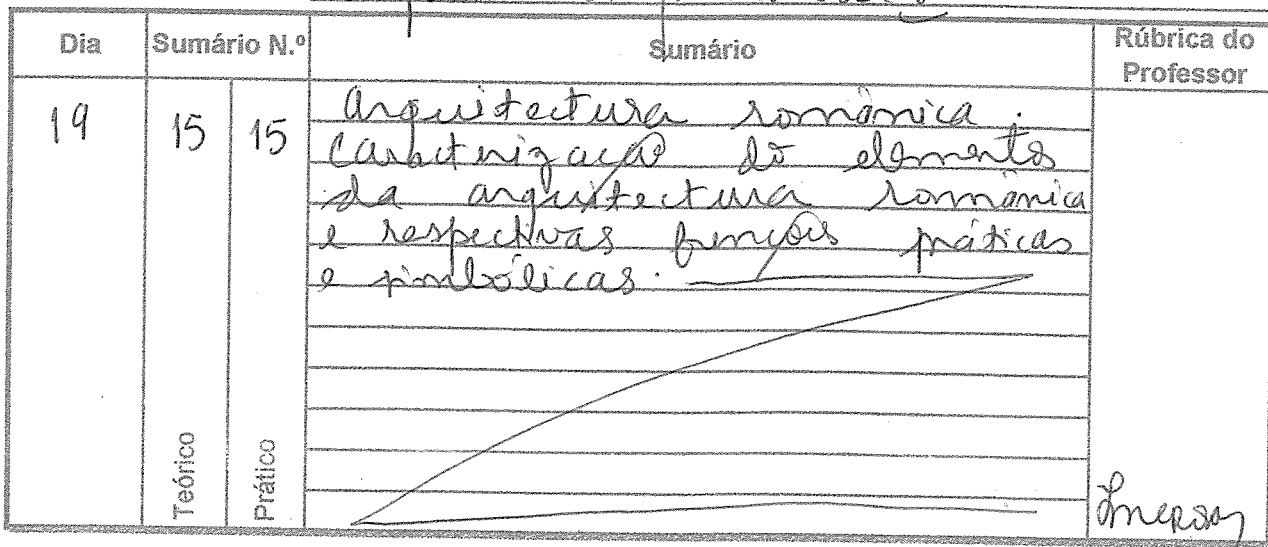 Dia Sumário N.º Sumário Rúbrica do Professor
19 15 15 Arquitectura românica.
Caracterização do elementos
da arquitectura românica
e respectivas funções práticas
e simbólicas.
Teórico Prático